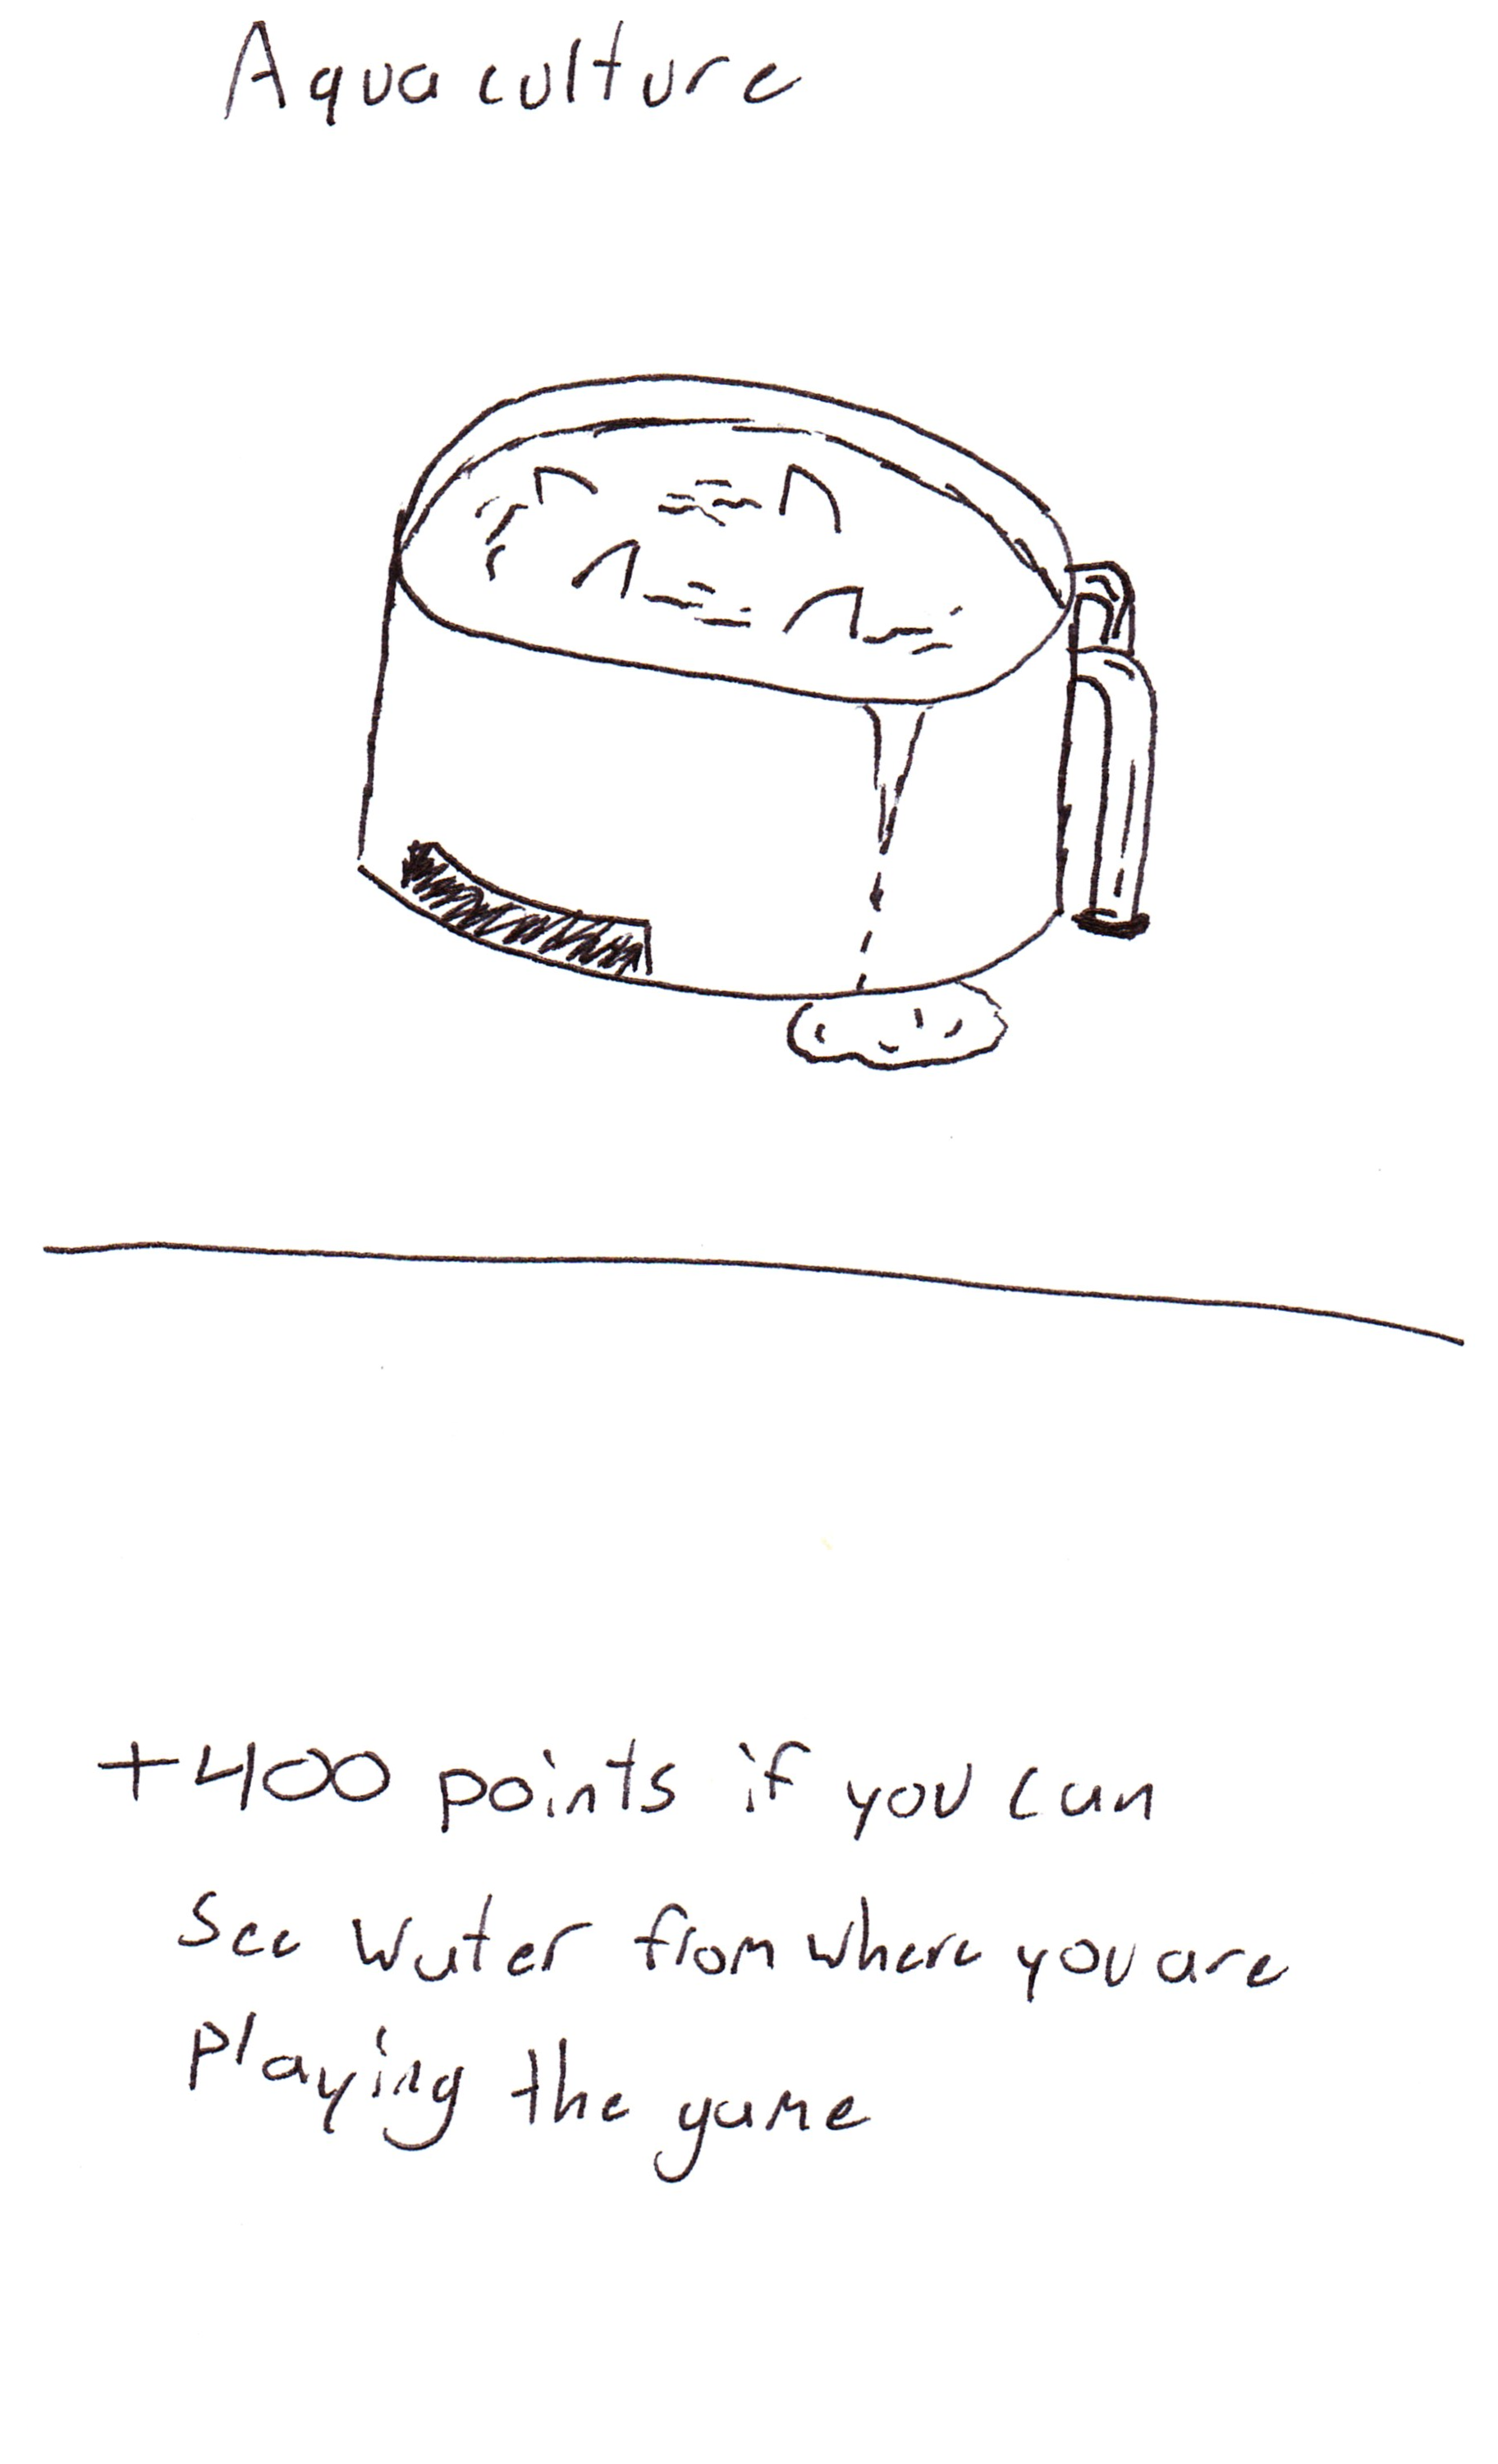 Aquaculture
+400 points if you can
see water from where you are
playing the game